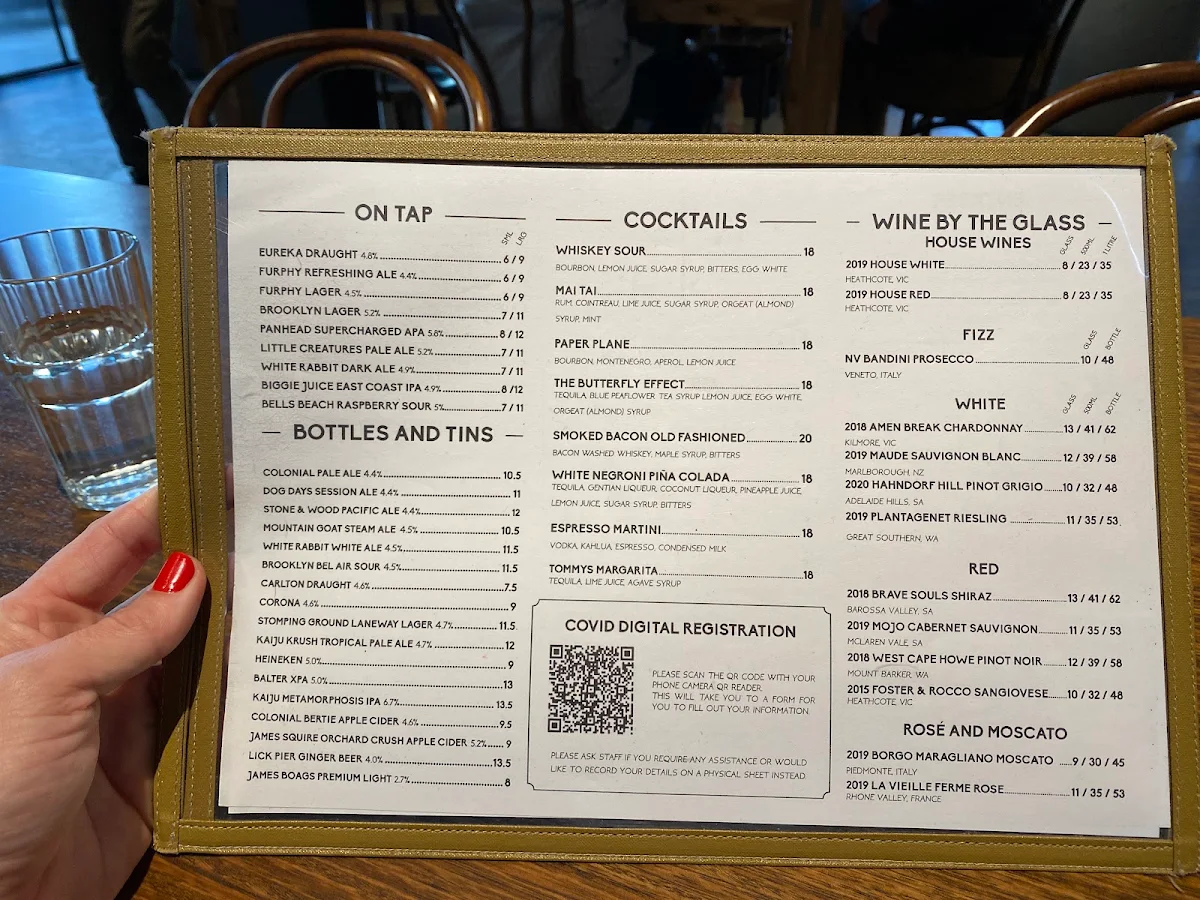 ON TAP
SML
LRG
EUREKA DRAUGHT 4.8% 6 / 9
FURPHY REFRESHING ALE 4.4% 6 / 9
FURPHY LAGER 4.5% 6 / 9
BROOKLYN LAGER 5.2% 7 / 11
PANHEAD SUPERCHARGED APA 5.8% 8 / 12
LITTLE CREATURES PALE ALE 5.2% 7 / 11
WHITE RABBIT DARK ALE 4.9% 7 / 11
BIGGIE JUICE EAST COAST IPA 4.9% 8 /12
BELLS BEACH RASPBERRY SOUR 5% 7 / 11
BOTTLES AND TINS
COLONIAL PALE ALE 4.4% 10.5
DOG DAYS SESSION ALE 4.4% 11
STONE & WOOD PACIFIC ALE 4.4% 12
MOUNTAIN GOAT STEAM ALE 4.5% 10.5
WHITE RABBIT WHITE ALE 4.5% 11.5
BROOKLYN BEL AIR SOUR 4.5% 11.5
CARLTON DRAUGHT 4.6% 7.5
CORONA 4.6% 9
STOMPING GROUND LANEWAY LAGER 4.7% 11.5
KAIJU KRUSH TROPICAL PALE ALE 4.7% 12
HEINEKEN 5.0% 9
BALTER XPA 5.0% 13
KAIJU METAMORPHOSIS IPA 6.7% 13.5
COLONIAL BERTIE APPLE CIDER 4.6% 9.5
JAMES SQUIRE ORCHARD CRUSH APPLE CIDER 5.2% 9
LICK PIER GINGER BEER 4.0% 13.5
JAMES BOAGS PREMIUM LIGHT 2.7% 8
COCKTAILS
WHISKEY SOUR 18
BOURBON, LEMON JUICE, SUGAR SYRUP, BITTERS, EGG WHITE
MAI TAI 18
RUM, COINTREAU, LIME JUICE, SUGAR SYRUP, ORGEAT (ALMOND)
SYRUP, MINT
PAPER PLANE 18
BOURBON, MONTENEGRO, APEROL, LEMON JUICE
THE BUTTERFLY EFFECT 18
TEQUILA, BLUE PEAFLOWER TEA SYRUP LEMON JUICE, EGG WHITE,
ORGEAT (ALMOND) SYRUP
SMOKED BACON OLD FASHIONED 20
BACON WASHED WHISKEY, MAPLE SYRUP, BITTERS
WHITE NEGRONI PIÑA COLADA 18
TEQUILA, GENTIAN LIQUEUR, COCONUT LIQUEUR, PINEAPPLE JUICE,
LEMON JUICE, SUGAR SYRUP, BITTERS
ESPRESSO MARTINI 18
VODKA, KAHLUA, ESPRESSO, CONDENSED MILK
TOMMYS MARGARITA 18
TEQUILA, LIME JUICE, AGAVE SYRUP
COVID DIGITAL REGISTRATION
PLEASE SCAN THE QR CODE WITH YOUR
PHONE CAMERA QR READER.
THIS WILL TAKE YOU TO A FORM FOR
YOU TO FILL OUT YOUR INFORMATION.
PLEASE ASK STAFF IF YOU REQUIRE ANY ASSISTANCE OR WOULD
LIKE TO RECORD YOUR DETAILS ON A PHYSICAL SHEET INSTEAD.
WINE BY THE GLASS
HOUSE WINES
GLASS
500ML
1 LITRE
2019 HOUSE WHITE 8 / 23 / 35
HEATHCOTE, VIC
2019 HOUSE RED 8 / 23 / 35
HEATHCOTE, VIC
FIZZ
GLASS
BOTTLE
NV BANDINI PROSECCO 10 / 48
VENETO, ITALY
WHITE
GLASS
500ML
BOTTLE
2018 AMEN BREAK CHARDONNAY 13 / 41 / 62
KILMORE, VIC
2019 MAUDE SAUVIGNON BLANC 12 / 39 / 58
MARLBOROUGH, NZ
2020 HAHNDORF HILL PINOT GRIGIO 10 / 32 / 48
ADELAIDE HILLS, SA
2019 PLANTAGENET RIESLING 11 / 35 / 53
GREAT SOUTHERN, WA
RED
2018 BRAVE SOULS SHIRAZ 13 / 41 / 62
BAROSSA VALLEY, SA
2019 MOJO CABERNET SAUVIGNON 11 / 35 / 53
MCLAREN VALE, SA
2018 WEST CAPE HOWE PINOT NOIR 12 / 39 / 58
MOUNT BARKER, WA
2015 FOSTER & ROCCO SANGIOVESE 10 / 32 / 48
HEATHCOTE, VIC
ROSÉ AND MOSCATO
2019 BORGO MARAGLIANO MOSCATO 9 / 30 / 45
PIEDMONTE, ITALY
2019 LA VIEILLE FERME ROSE 11 / 35 / 53
RHONE VALLEY, FRANCE